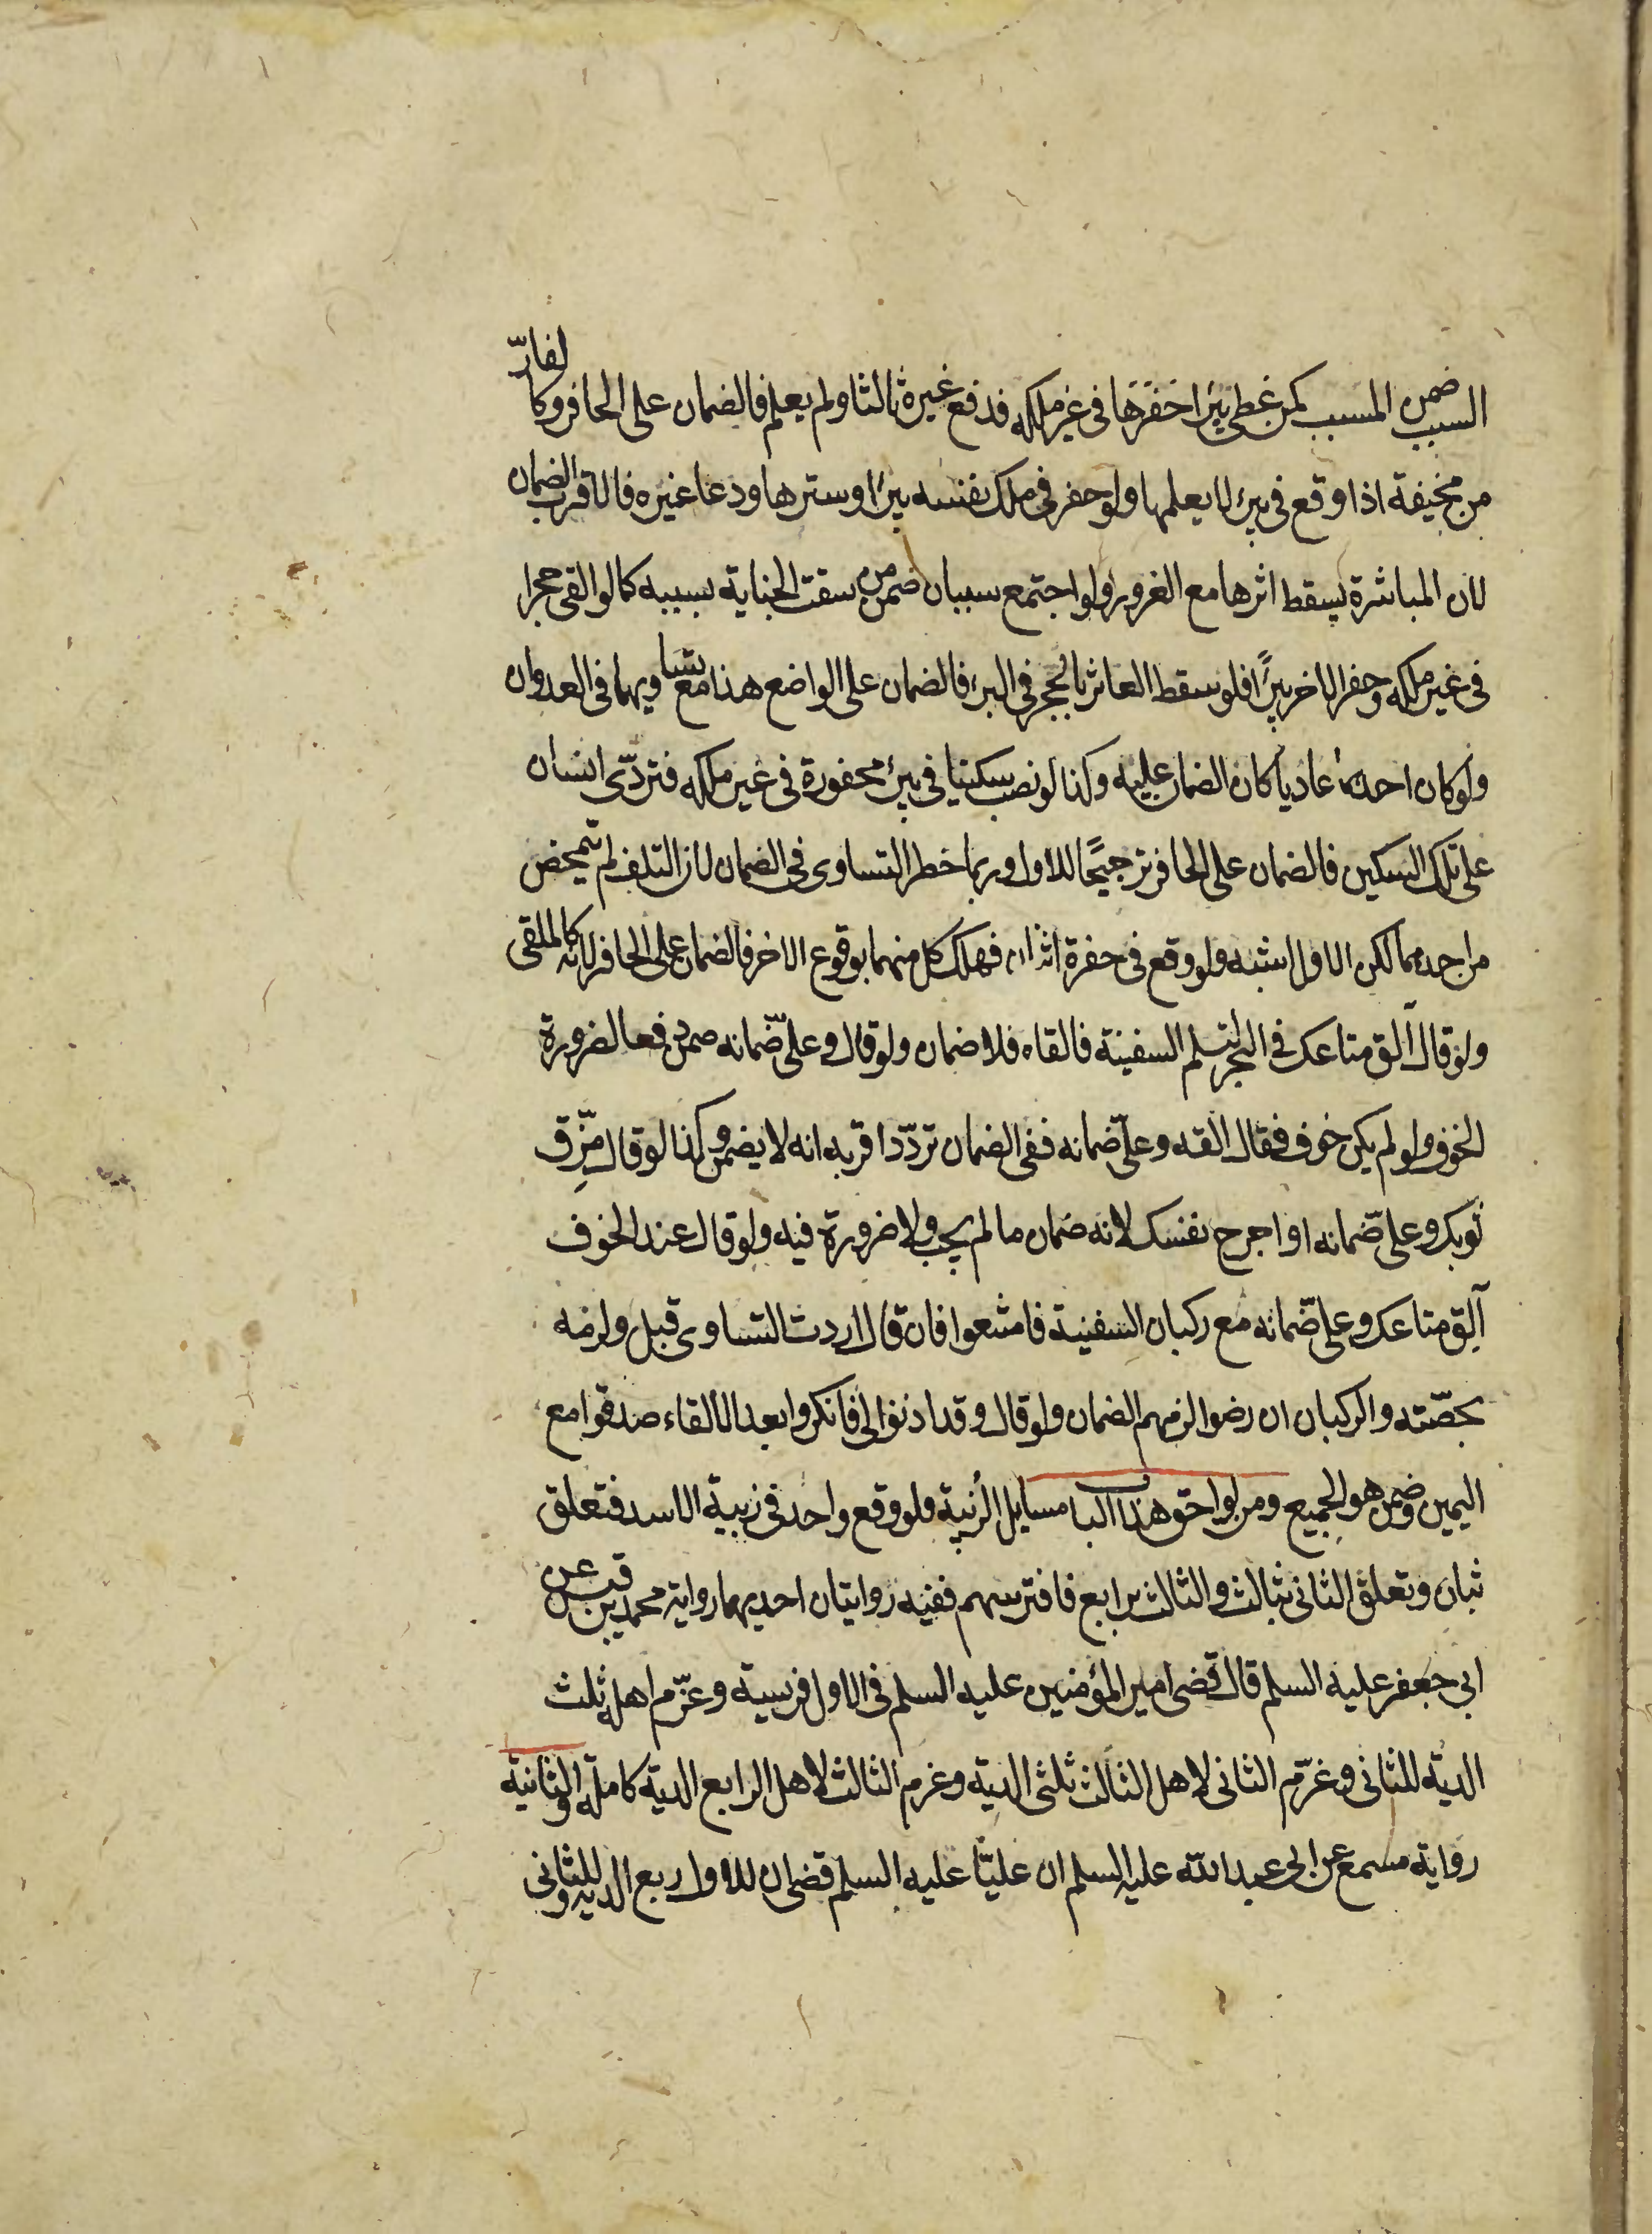 السبب ضمن المسبب كمن غطى بيرا حفرها فى غير ملكه فدفع غيره ثالثا ولم يعلم فالضمان على الحافر وكالفارّ
من مخيفة اذا وقع فى بير لا يعلمها ولو حفر فى ملك نفسه بيرًا وسترها ودعا غيره فالاقرب الضمان
لان المباشرة يسقط اثرها مع الغرور ولو اجتمع سببان ضمن من سبقت الجناية بسببه كما لو القى حجرا
فى غير ملكه وحفر الاخر بيرًا فلو سقط العاثر بالحجر فى البير فالضمان على الواضع هذا مع تساويهما فى العدوان
ولو كان احدهما عاديا كان الضمان عليه وكذا لو نصب سكينا فى بير محفورة فى غير ملكه فتردّى انسان
على تلك السكين فالضمان على الحافر ترجيحًا للاول وربما خطر التساوى فى الضمان لان التلف لم يتمحض
من احدهما لكن الاول اشبه ولو وقع فى حفرة اثنان فهلك كل منهما بوقوع الاخر فالضمان على الحافر لانه كالملقى
ولو قال الق متاعك فى البحر لتسلم السفينة فالقاه فلا ضمان ولو قال وعلىّ ضمانه ضمن دفعا لضرورة
الخوف ولو لم يكن خوف فقال القه وعلىّ ضمانه ففى الضمان تردّد اقربه انه لا يضمن وكذا لو قال مزّق
ثوبك وعلىّ ضمانه او اجرح نفسك لانه ضمان ما لم يجب ولا ضرورة فيه ولو قال عند الخوف
الق متاعك وعلىّ ضمانه مع ركبان السفينة فامتنعوا فان قال اردت التساوى قبل ولزمه
بحصّته والركبان ان رضوا لزمهم الضمان ولو قال وقد اذنوا لى فانكروا بعد الالقاء صدقوا مع
اليمين وضمن هو الجميع ومن لواحق هذا الباب مسايل الزُبية فلو وقع واحد فى زبية الاسد فتعلق
بثان وتعلق الثانى بثالث والثالث برابع فافترسهم ففيه روايتان احديهما رواية محمد بن قيس عن
ابى جعفر عليه السلم قال قضى امير المؤمنين عليه السلم فى الاول فريسة وغرّم اهله ثلث
الدية للثانى وغرّم الثانى لاهل الثالث ثلثى الدية وغرم الثالث لاهل الرابع الدية كاملة والثانية
رواية مسمع عن ابى عبد الله عليه السلم ان عليّا عليه السلم قضى ان للاول ربع الدية وللثانى